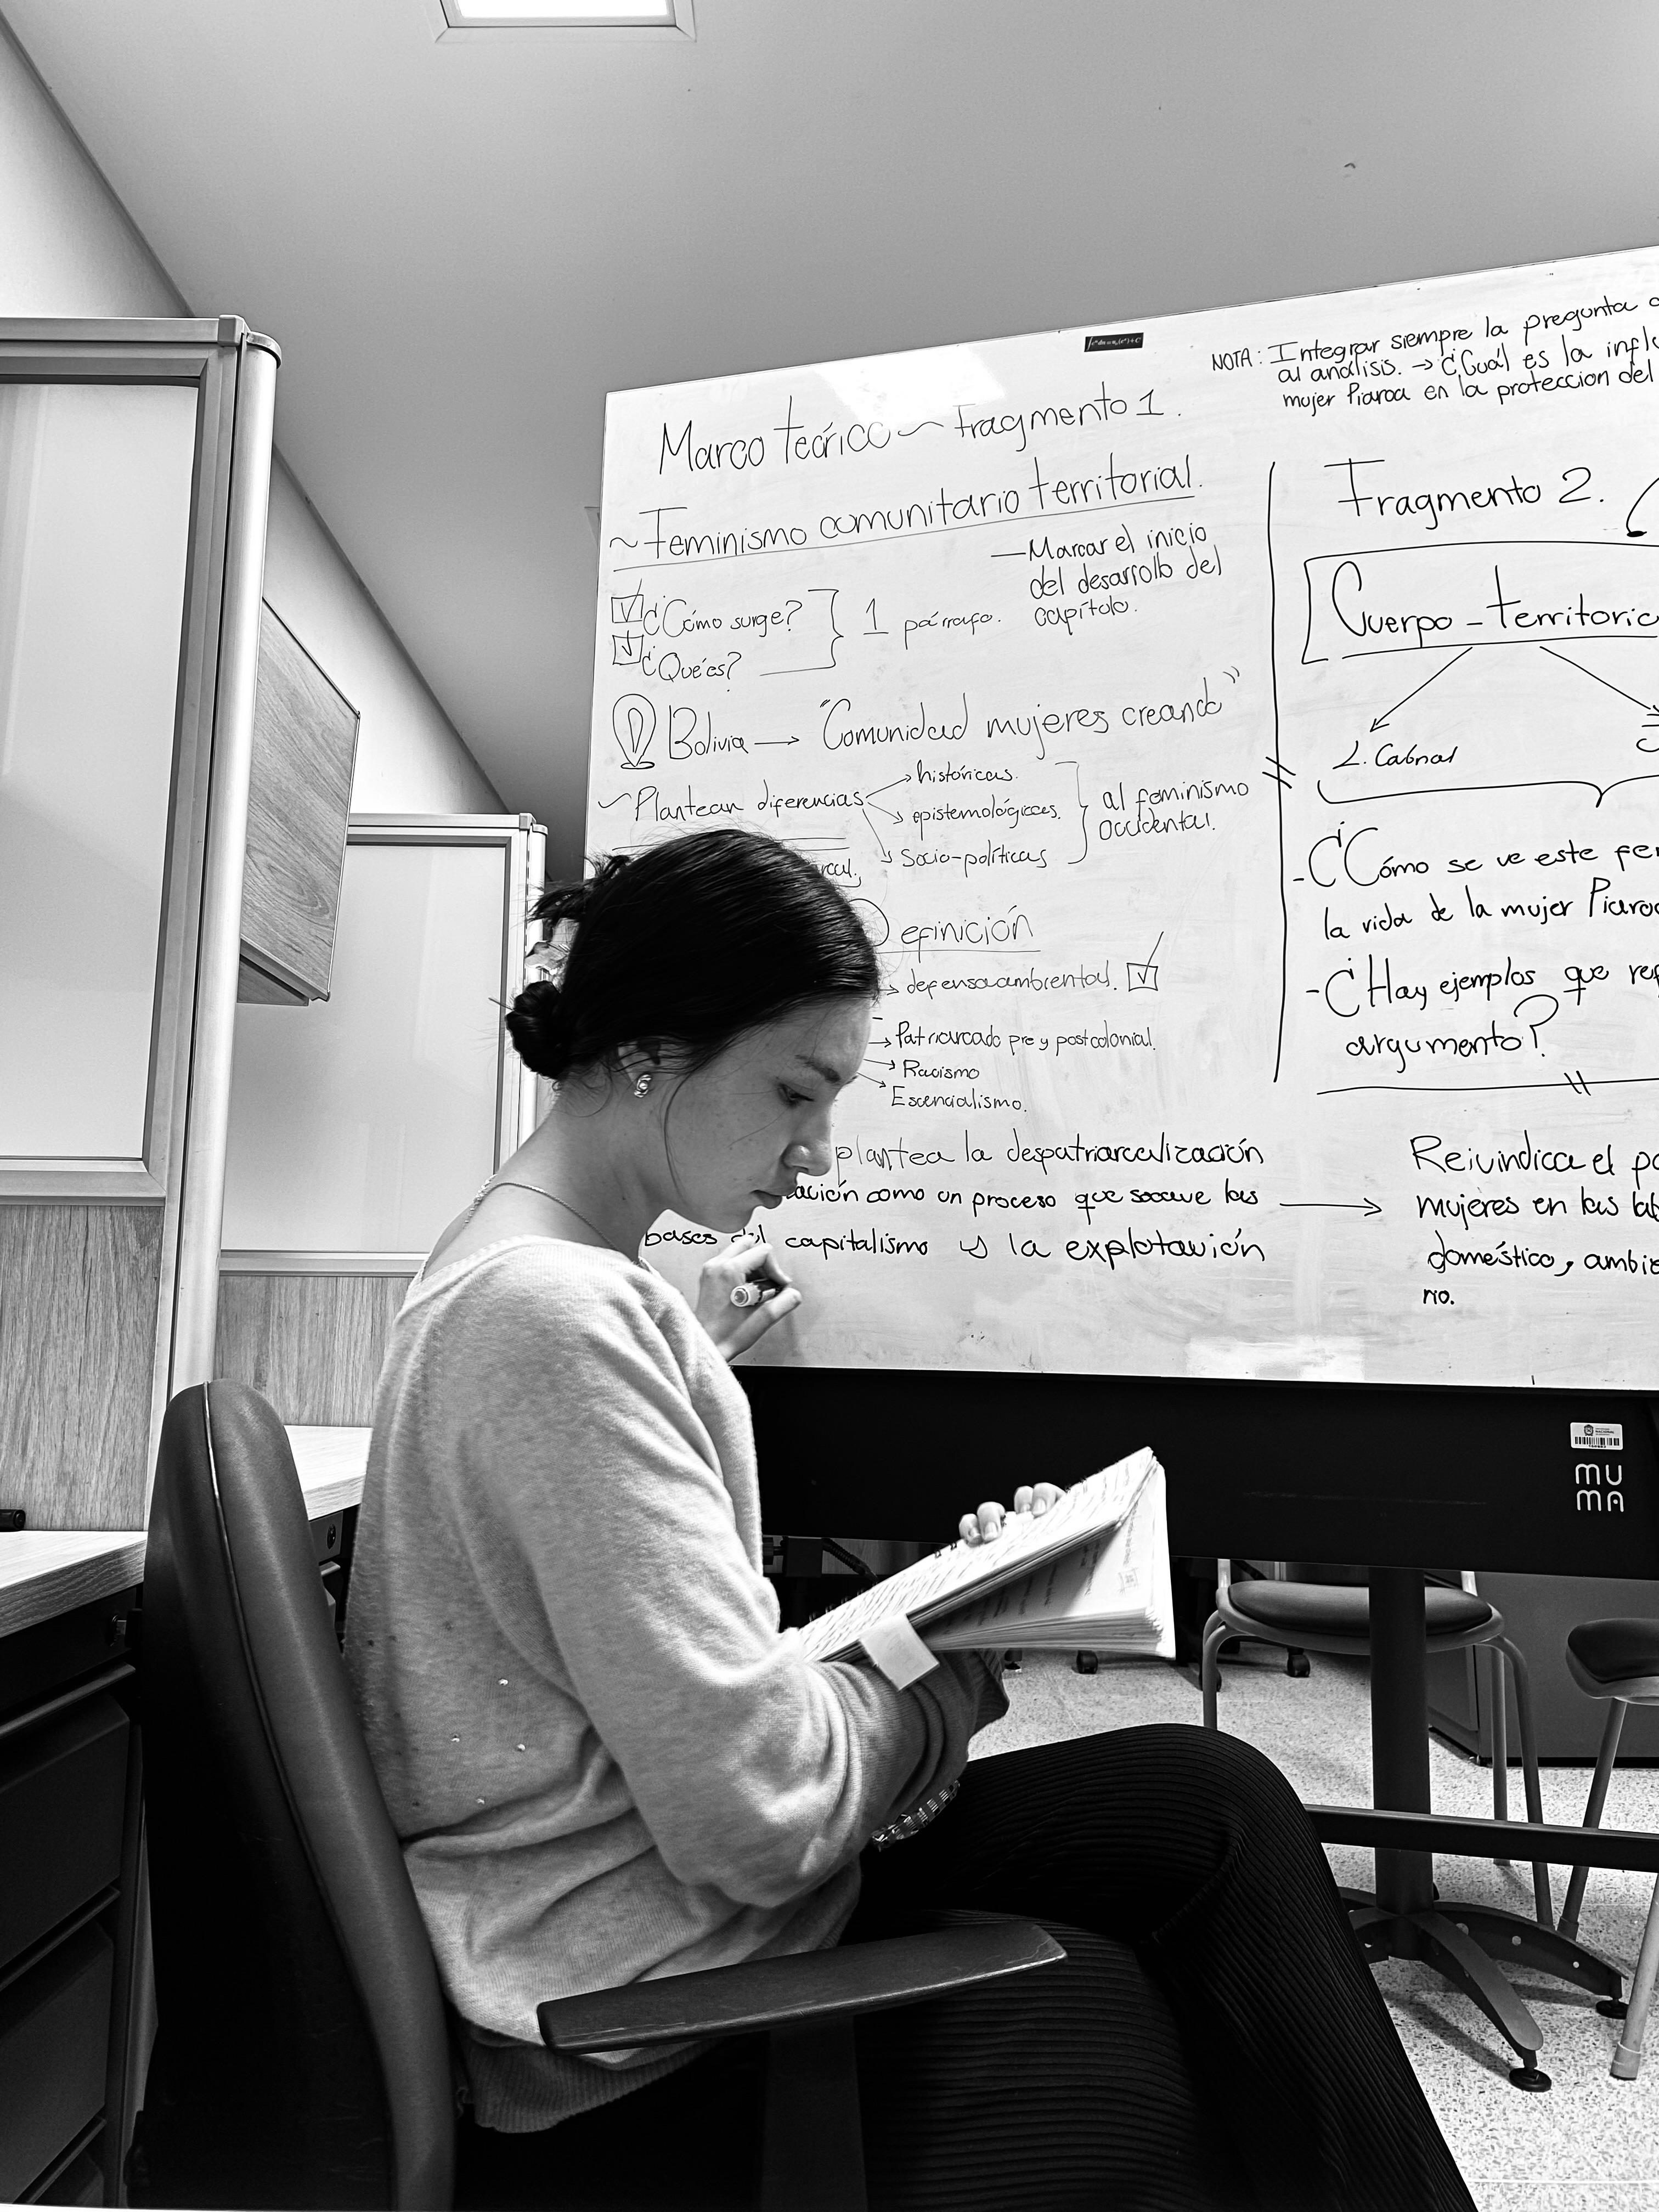 NOTA: Integrar siempre la pregunta
al análisis. → ¿Cuál es la
mujer Piaroa en la proteccion del
Marco teórico ~ Fragmento 1.
~ Feminismo comunitario territorial.
— Marcar el inicio
del desarrollo del
capítulo.
¿Cómo surge?
¿Qué es?
1 párrafo.
Bolivia → "Comunidad mujeres creando"
~ Plantean diferencias
→ históricas.
→ epistemológicas.
→ Socio-políticas
al feminismo
occidental.
Definición
→ defensa ambiental.
→ Patriarcado pre y postcolonial.
→ Racismo
→ Escencialismo.
plantea la despatriarcalización
como un proceso que socave las
bases del capitalismo y la explotación
Fragmento 2.
Cuerpo - territorio
L. Cabnal
- ¿Cómo se ve este
la vida de la mujer Piaroa
- ¿Hay ejemplos que
argumento?
→ Reivindica el
mujeres en las
doméstico,
rio.
MU
MA